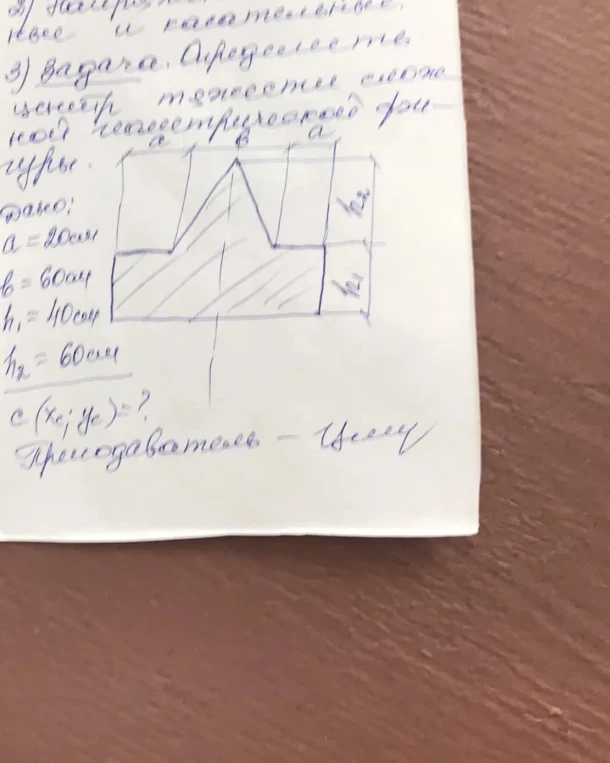 ные и касательные.
3) Задача. Определить
центр тяжести слож-
ной геометрической фи-
гуры.
a в a
Дано:
a = 20см
в = 60см
h₁ = 40см
h₂ = 60см
h₂
h₁
c (xc; yc) = ?
Преподаватель –